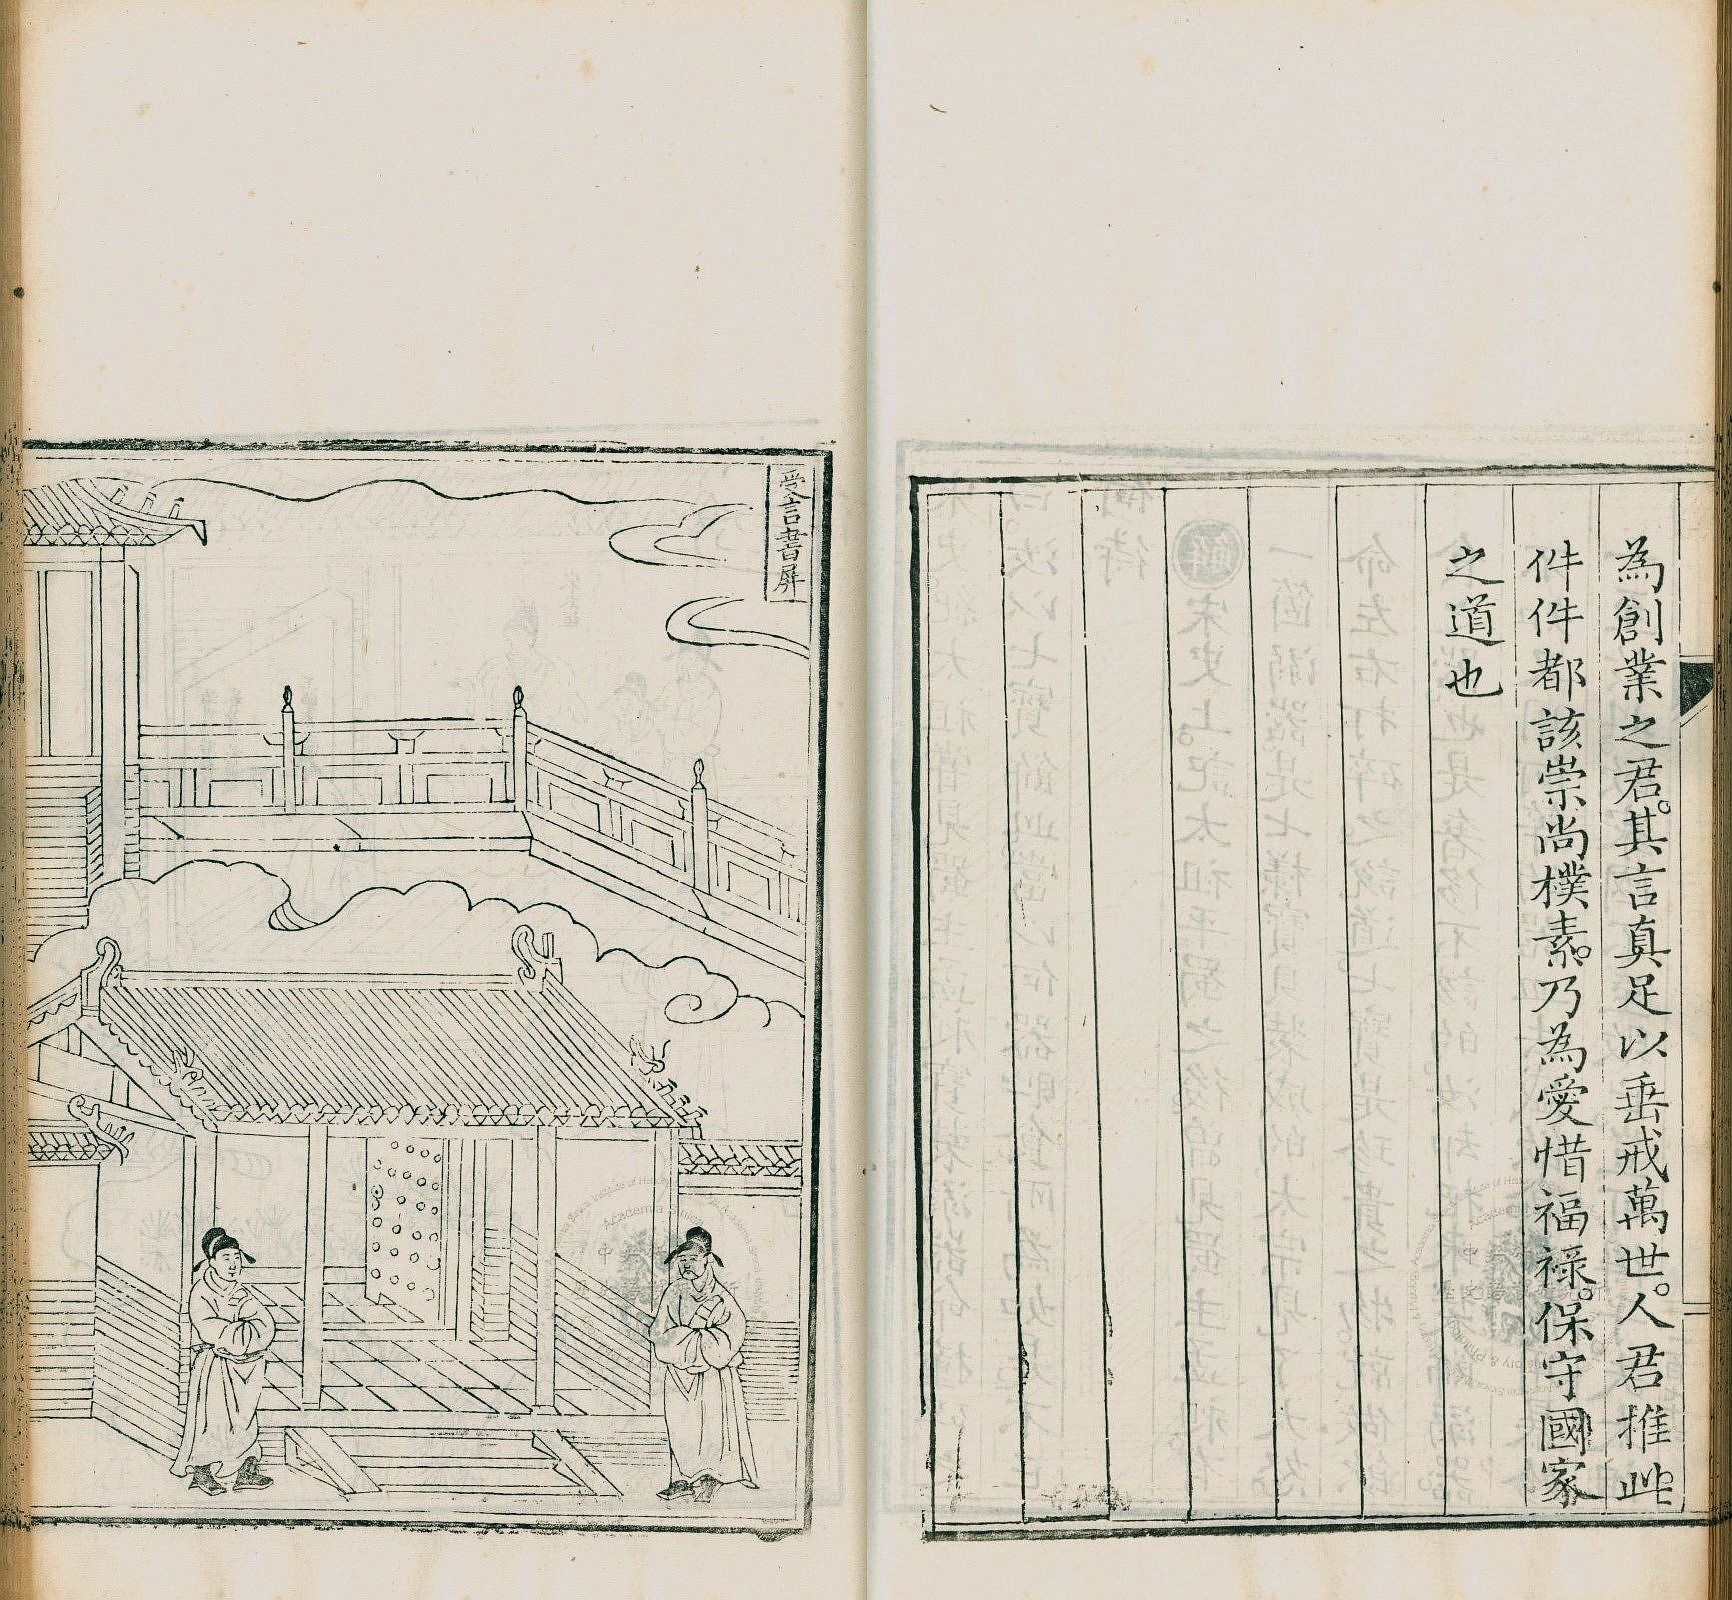 為創業之君。其言真足以垂戒萬世。人君推此
件件都該崇尚樸素。乃為愛惜福祿。保守國家
之道也
受言書屏